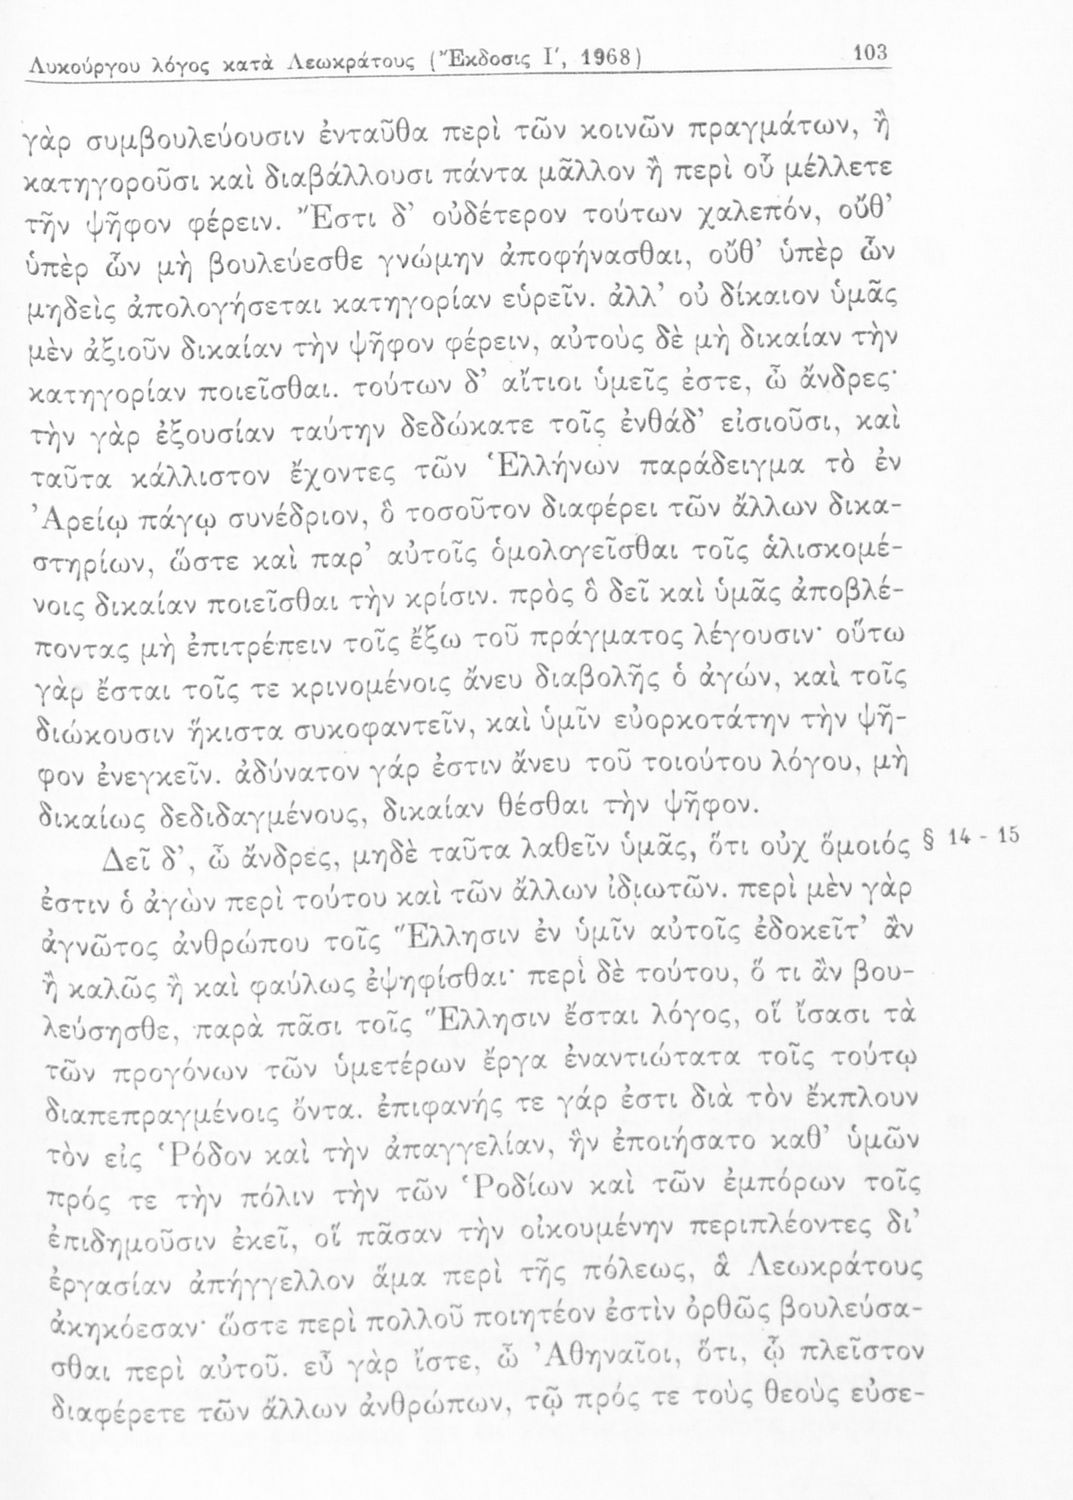 Λυκούργου λόγος κατὰ Λεωκράτους (Ἔκδοσις Ι΄, 1968) 103
γὰρ συμβουλεύουσιν ἐνταῦθα περὶ τῶν κοινῶν πραγμάτων, ἢ
κατηγοροῦσι καὶ διαβάλλουσι πάντα μᾶλλον ἢ περὶ οὗ μέλλετε
τὴν ψῆφον φέρειν. Ἔστι δ’ οὐδέτερον τούτων χαλεπόν, οὔθ’
ὑπὲρ ὧν μὴ βουλεύεσθε γνώμην ἀποφήνασθαι, οὔθ’ ὑπὲρ ὧν
μηδεὶς ἀπολογήσεται κατηγορίαν εὑρεῖν. ἀλλ’ οὐ δίκαιον ὑμᾶς
μὲν ἀξιοῦν δικαίαν τὴν ψῆφον φέρειν, αὐτοὺς δὲ μὴ δικαίαν τὴν
κατηγορίαν ποιεῖσθαι. τούτων δ’ αἴτιοι ὑμεῖς ἐστε, ὦ ἄνδρες·
τὴν γὰρ ἐξουσίαν ταύτην δεδώκατε τοῖς ἐνθάδ’ εἰσιοῦσι, καὶ
ταῦτα κάλλιστον ἔχοντες τῶν Ἑλλήνων παράδειγμα τὸ ἐν
Ἀρείῳ πάγῳ συνέδριον, ὃ τοσοῦτον διαφέρει τῶν ἄλλων δικα-
στηρίων, ὥστε καὶ παρ’ αὐτοῖς ὁμολογεῖσθαι τοῖς ἁλισκομέ-
νοις δικαίαν ποιεῖσθαι τὴν κρίσιν. πρὸς ὃ δεῖ καὶ ὑμᾶς ἀποβλέ-
ποντας μὴ ἐπιτρέπειν τοῖς ἔξω τοῦ πράγματος λέγουσιν· οὕτω
γὰρ ἔσται τοῖς τε κρινομένοις ἄνευ διαβολῆς ὁ ἀγών, καὶ τοῖς
διώκουσιν ἥκιστα συκοφαντεῖν, καὶ ὑμῖν εὐορκοτάτην τὴν ψῆ-
φον ἐνεγκεῖν. ἀδύνατον γάρ ἐστιν ἄνευ τοῦ τοιούτου λόγου, μὴ
δικαίως δεδιδαγμένους, δικαίαν θέσθαι τὴν ψῆφον.
Δεῖ δ’, ὦ ἄνδρες, μηδὲ ταῦτα λαθεῖν ὑμᾶς, ὅτι οὐχ ὅμοιός § 14 - 15
ἐστιν ὁ ἀγὼν περὶ τούτου καὶ τῶν ἄλλων ἰδιωτῶν. περὶ μὲν γὰρ
ἀγνῶτος ἀνθρώπου τοῖς Ἕλλησιν ἐν ὑμῖν αὐτοῖς ἐδοκεῖτ’ ἂν
ἢ καλῶς ἢ καὶ φαύλως ἐψηφίσθαι· περὶ δὲ τούτου, ὅ τι ἂν βου-
λεύσησθε, παρὰ πᾶσι τοῖς Ἕλλησιν ἔσται λόγος, οἳ ἴσασι τὰ
τῶν προγόνων τῶν ὑμετέρων ἔργα ἐναντιώτατα τοῖς τούτῳ
διαπεπραγμένοις ὄντα. ἐπιφανής τε γάρ ἐστι διὰ τὸν ἔκπλουν
τὸν εἰς Ῥόδον καὶ τὴν ἀπαγγελίαν, ἣν ἐποιήσατο καθ’ ὑμῶν
πρός τε τὴν πόλιν τὴν τῶν Ῥοδίων καὶ τῶν ἐμπόρων τοῖς
ἐπιδημοῦσιν ἐκεῖ, οἳ πᾶσαν τὴν οἰκουμένην περιπλέοντες δι’
ἐργασίαν ἀπήγγελλον ἅμα περὶ τῆς πόλεως, ἃ Λεωκράτους
ἀκηκόεσαν· ὥστε περὶ πολλοῦ ποιητέον ἐστὶν ὀρθῶς βουλεύσα-
σθαι περὶ αὐτοῦ. εὖ γὰρ ἴστε, ὦ Ἀθηναῖοι, ὅτι, ᾧ πλεῖστον
διαφέρετε τῶν ἄλλων ἀνθρώπων, τῷ πρός τε τοὺς θεοὺς εὐσε-